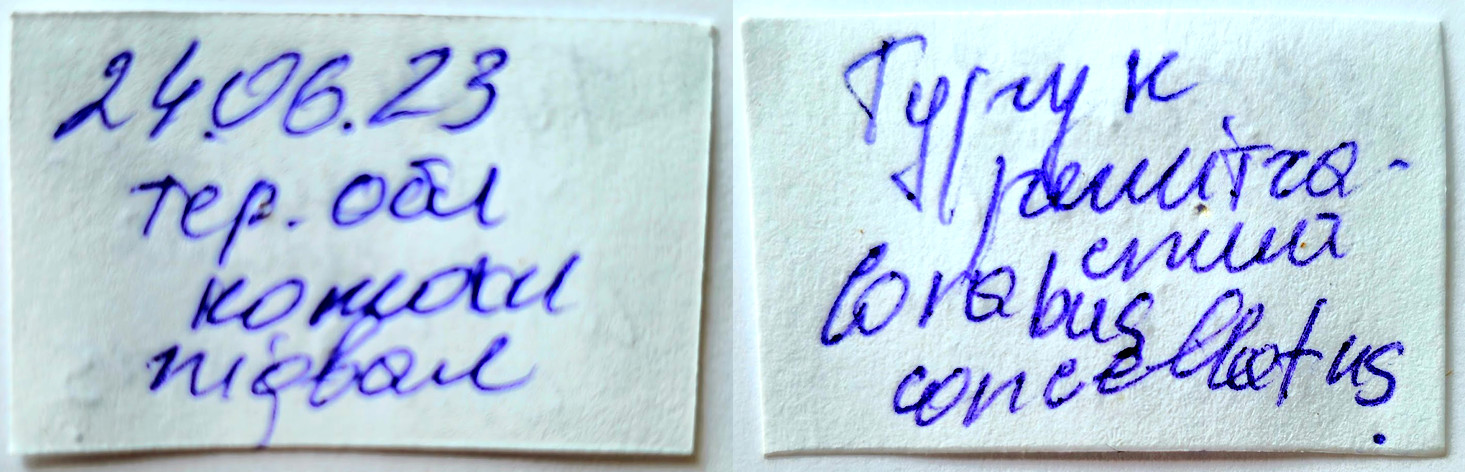 24.06.23
тер. обл
комахи
підвал
Турун
решітча-
стий
Carabus
cancellatus.